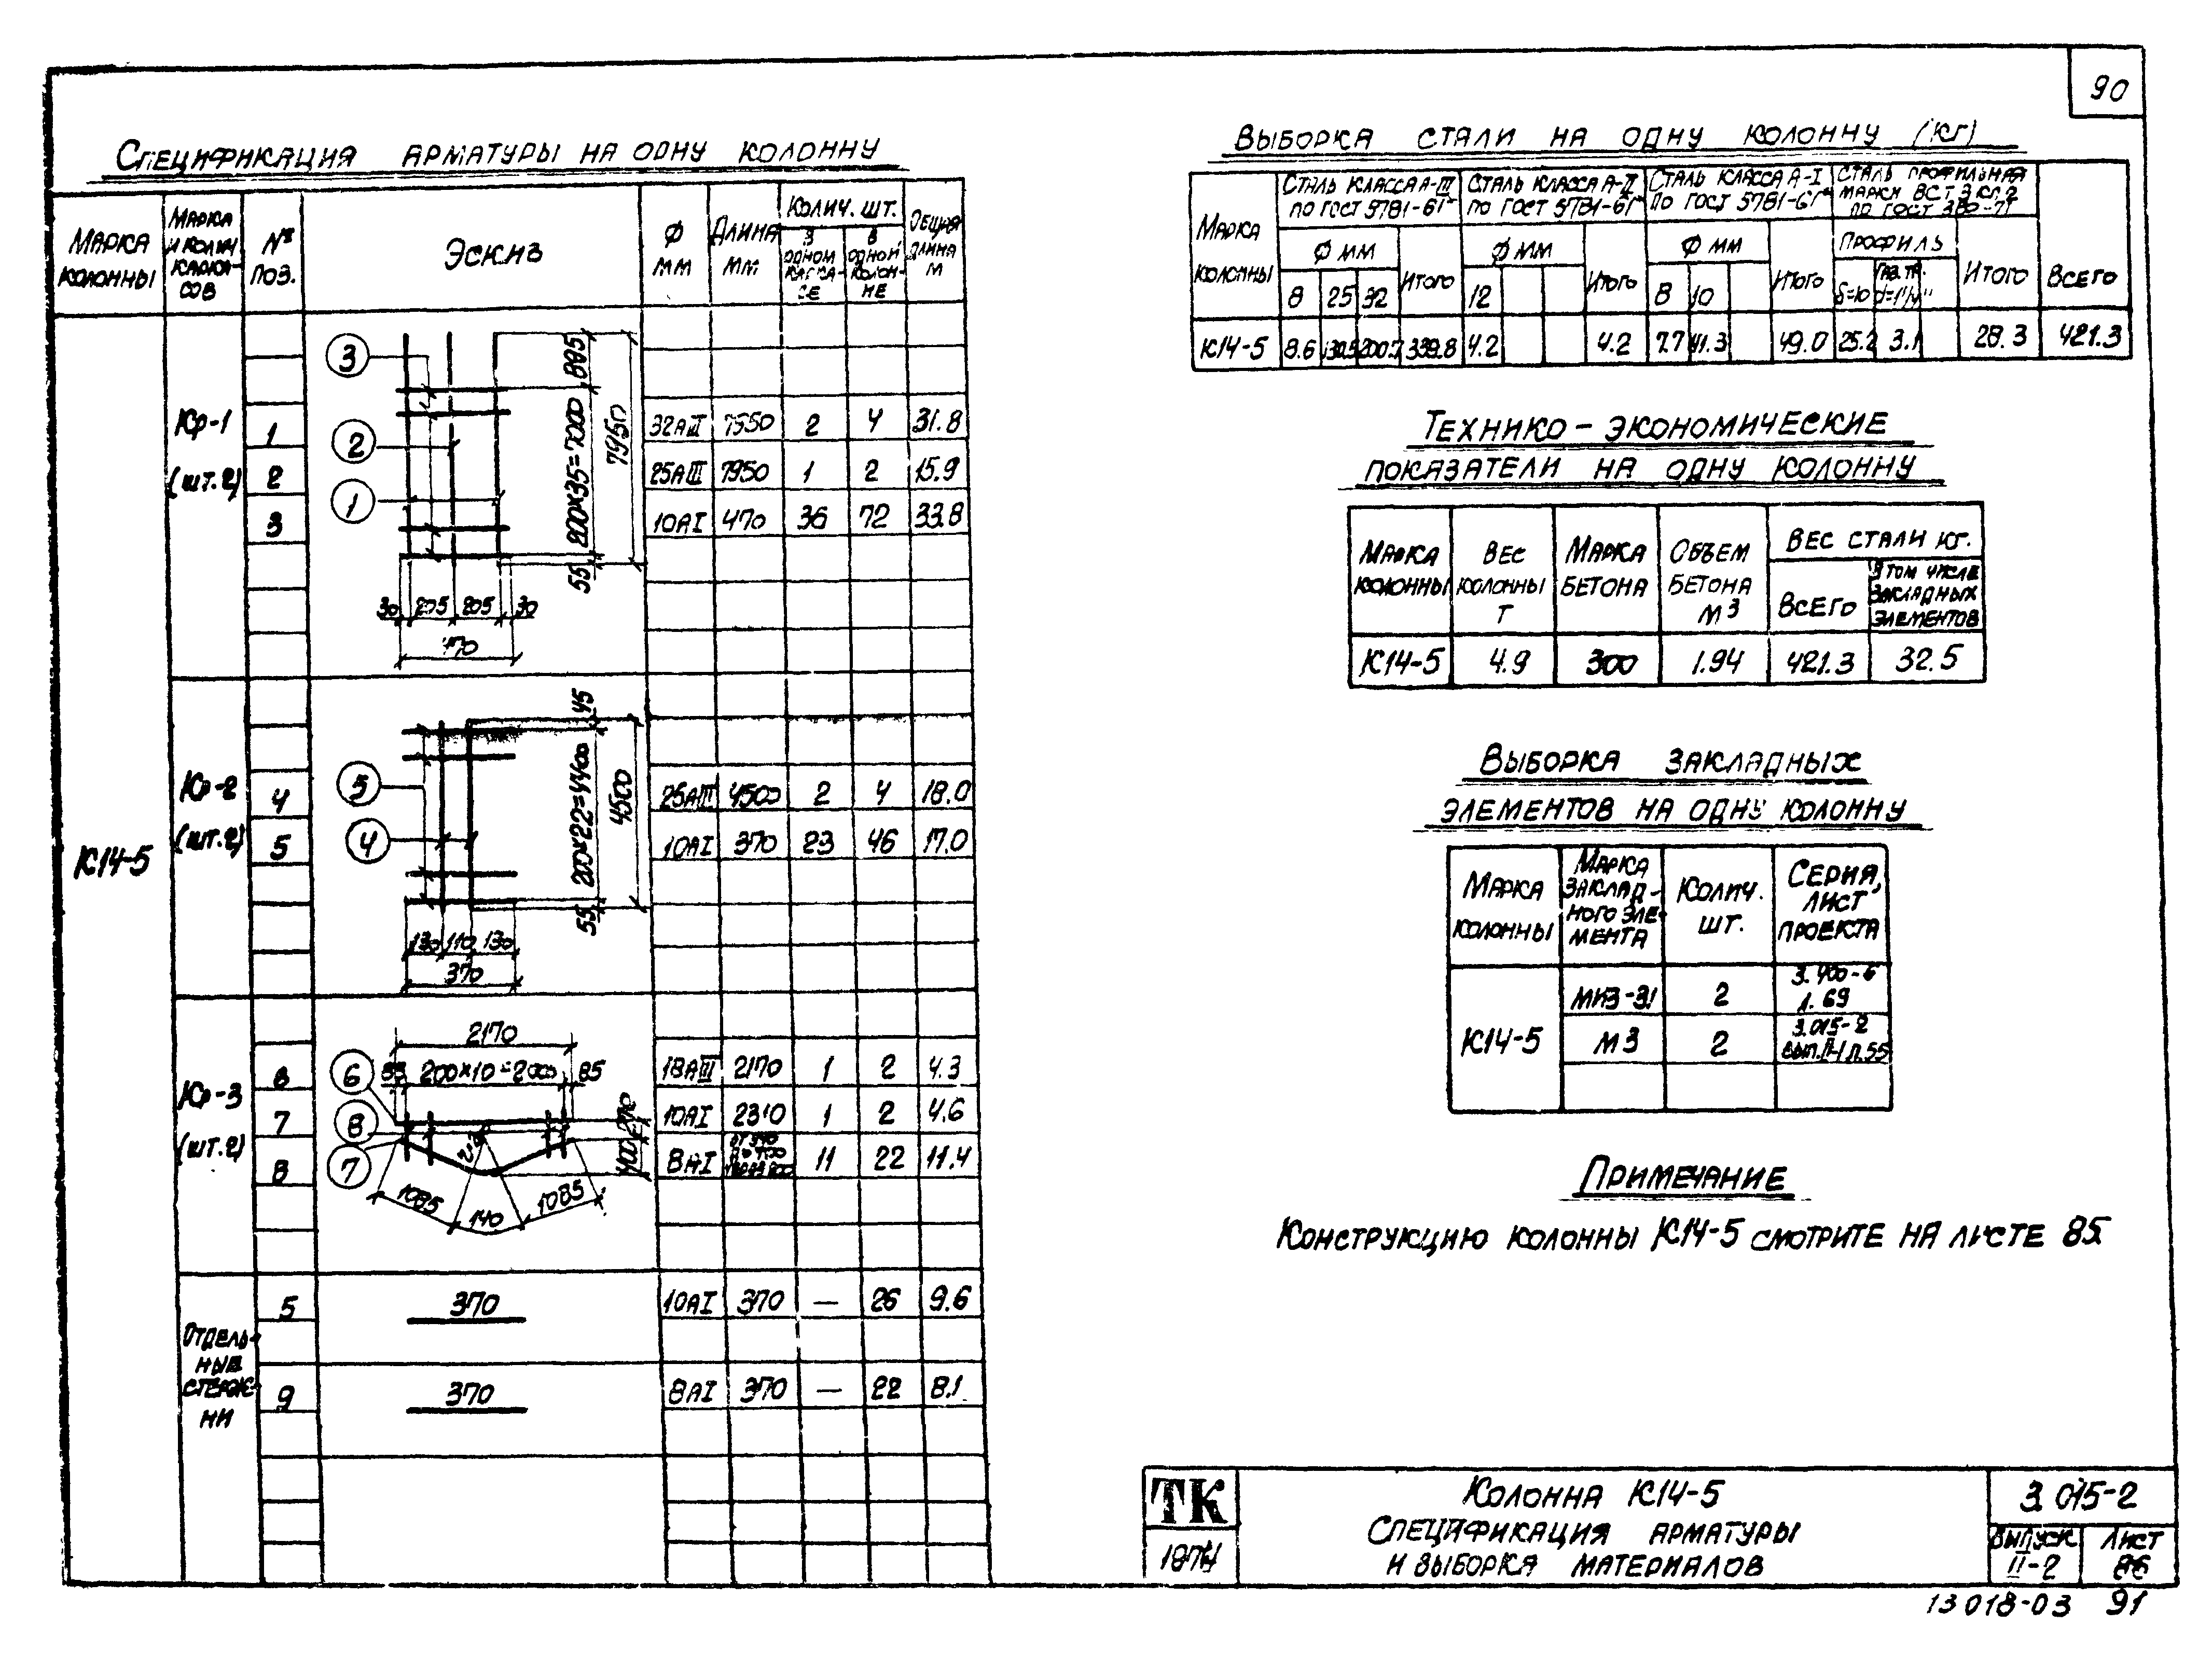 90
СПЕЦИФИКАЦИЯ АРМАТУРЫ НА ОДНУ КОЛОННУ
МАРКА КОЛОННЫ
МАРКА И КОЛИЧ КАРКА-СОВ
№ ПОЗ.
ЭСКИЗ
Ф ММ
ДЛИНА ММ
КОЛИЧ. ШТ.
В ОДНОМ КАРКА-СЕ
В ОДНОЙ КОЛОН-НЕ
ОБЩАЯ ДЛИНА М
К14-5
Кр-1
(шт.2)
3
2
1
895
200×35=7000
7950
55
30 205 205 30
470
1 32АIII 7950 2 4 31.8
2 25АIII 7950 1 2 15.9
3 10АI 470 36 72 33.8
Кр-2
(шт.2)
5
4
45
200×22=4400
4500
55
130 110 130
370
4 25АIII 4500 2 4 18.0
5 10АI 370 23 46 17.0
Кр-3
(шт.2)
2170
6
85 200×10=2000 85
8
7
270
400
1085 140 1085
6 18АIII 2170 1 2 4.3
7 10АI 2310 1 2 4.6
8 8АI 11 22 11.4
ОТДЕЛЬ-
НЫЕ
СТЕРЖ-
НИ
5 370 10АI 370 — 26 9.6
9 370 8АI 370 — 22 8.1
ВЫБОРКА СТАЛИ НА ОДНУ КОЛОННУ (КГ)
МАРКА КОЛОННЫ
СТАЛЬ КЛАССА А-III ПО ГОСТ 5781-61*
СТАЛЬ КЛАССА А-II ПО ГОСТ 5781-61*
СТАЛЬ КЛАССА А-I ПО ГОСТ 5781-61*
СТАЛЬ ПРОФИЛЬНАЯ МАРКИ ВСТ3КП2 ПО ГОСТ 380-71
ВСЕГО
Ф ММ ИТОГО Ф ММ ИТОГО Ф ММ ИТОГО ПРОФИЛЬ ИТОГО
8 25 32 12 8 10 δ=10 ГАЗ.ТР. d=1¼"
К14-5 8.6 130.5 200.7 339.8 4.2 4.2 7.7 41.3 49.0 25.2 3.1 28.3 421.3
ТЕХНИКО-ЭКОНОМИЧЕСКИЕ
ПОКАЗАТЕЛИ НА ОДНУ КОЛОННУ
МАРКА КОЛОННЫ
ВЕС КОЛОННЫ Т
МАРКА БЕТОНА
ОБЪЕМ БЕТОНА М3
ВЕС СТАЛИ КГ.
ВСЕГО
В ТОМ ЧИСЛЕ ЗАКЛАДНЫХ ЭЛЕМЕНТОВ
К14-5 4.9 300 1.94 421.3 32.5
ВЫБОРКА ЗАКЛАДНЫХ
ЭЛЕМЕНТОВ НА ОДНУ КОЛОННУ
МАРКА КОЛОННЫ
МАРКА ЗАКЛАД-НОГО ЭЛЕ-МЕНТА
КОЛИЧ. ШТ.
СЕРИЯ, ЛИСТ ПРОЕКТА
К14-5
МИЗ-31 2 3.400-6 1.69
М3 2 3.015-2 ВЫП.II-1 Л.55
ПРИМЕЧАНИЕ
КОНСТРУКЦИЮ КОЛОННЫ К14-5 СМОТРИТЕ НА ЛИСТЕ 85.
ТК
1974
КОЛОННА К14-5
СПЕЦИФИКАЦИЯ АРМАТУРЫ
И ВЫБОРКА МАТЕРИАЛОВ
3.015-2
ВЫПУСК II-2
ЛИСТ 86
13018-03 91